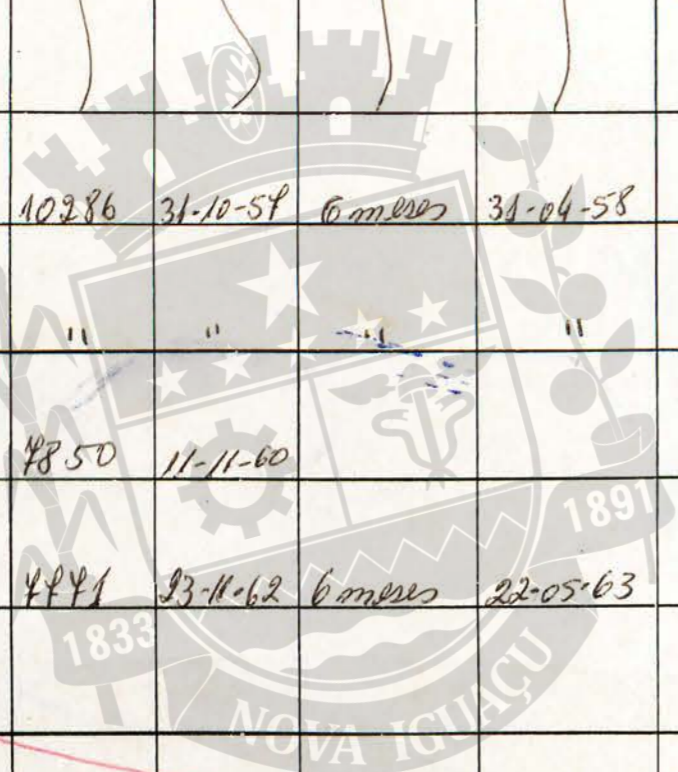 10286 31-10-57 6 meses 31-04-58
" " " "
7850 11-11-60
7771 23-11-62 6 meses 22-05-63
1891
1833
NOVA IGUAÇU